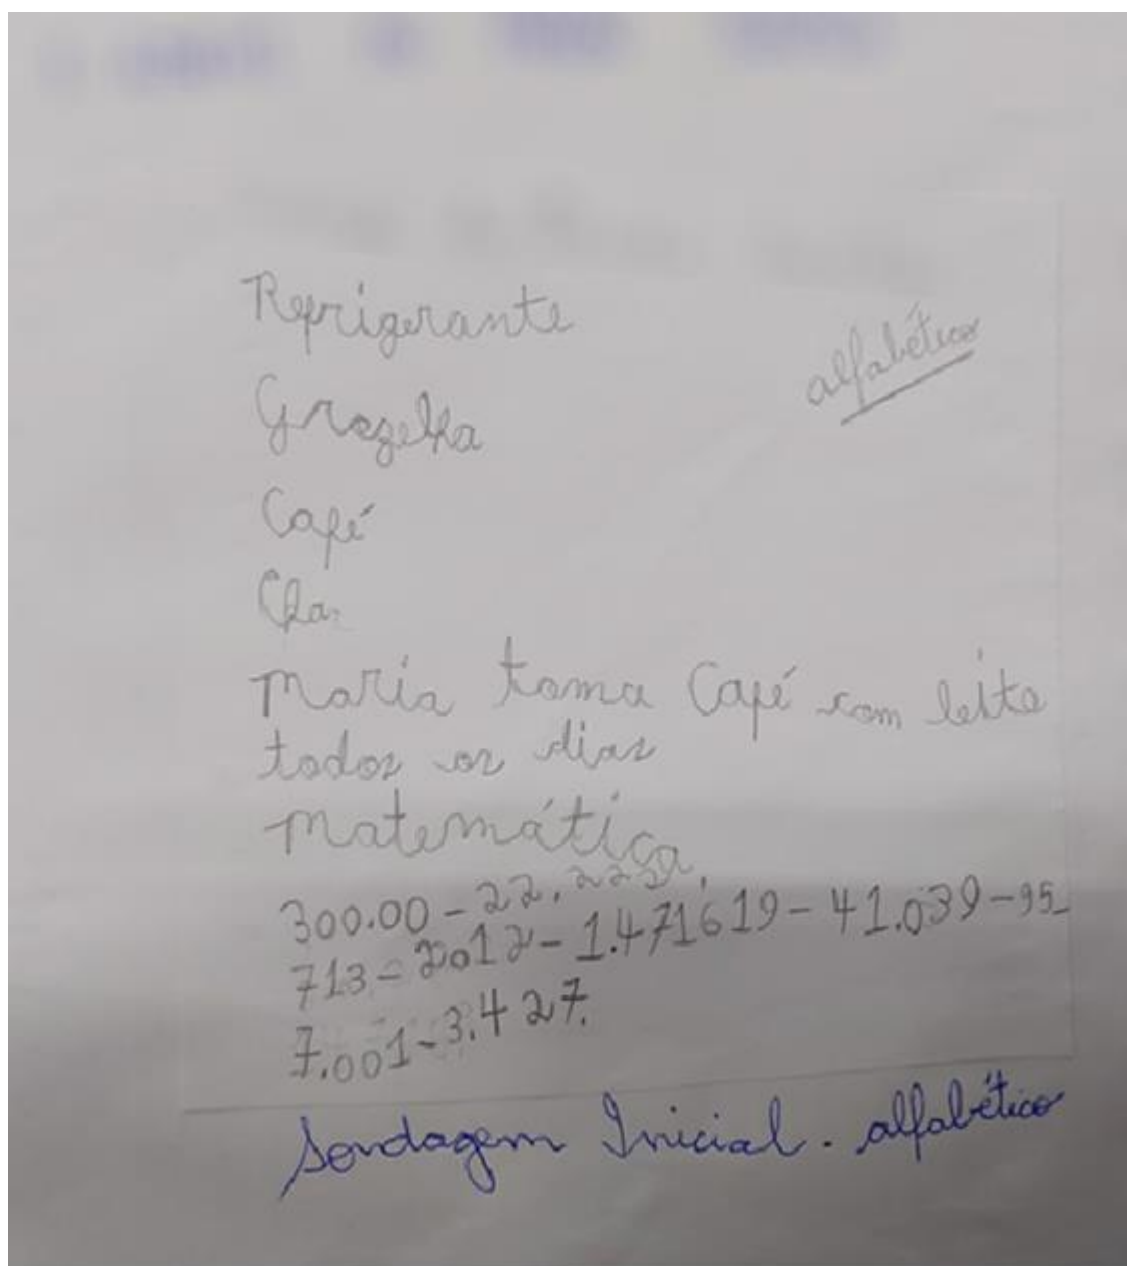 Refrigerante
alfabético
Grozelha
Café
Cha.
Maria toma Café com leite
todos os dias
Matemática
300.00 - 22.
713 - 2012 - 1.471619 - 41.039 - 95
7.001 - 3.427.
Sondagem Inicial. alfabético